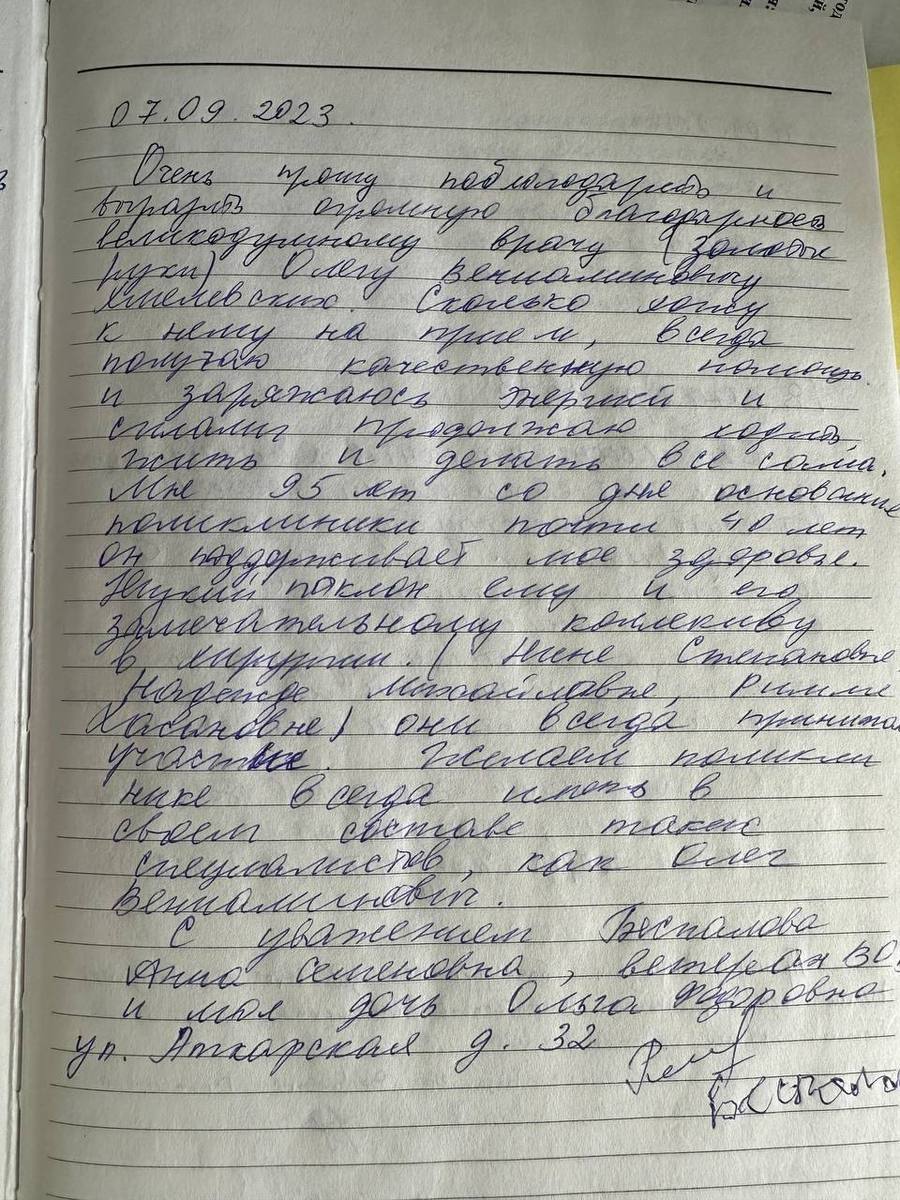 07.09.2023.
Очень прошу поблагодарить и
выразить огромную благодарность
великодушному врачу (золотые
руки) Олегу Вениаминовичу
Хмелевских. Сколько хожу
к нему на прием, всегда
получаю качественную помощь
и заряжаюсь энергией и
силами продолжаю ходить,
жить и делать все сама.
Мне 95 лет со дня основания
поликлиники почти 40 лет
он поддерживает мое здоровье.
Низкий поклон ему и его
замечательному коллекиву
в хирургии. (Нине Степановне,
Надежде Михайловне, Римме
Хасановне) они всегда принима
участие. Желаем поликли
нике всегда иметь в
своем составе таких
специалистов, как Олег
Вениаминович.
С уважением Беспалова
Анна Семеновна, ветеран ВО
и моя дочь Ольга Федоровна
ул. Аткарская д. 32